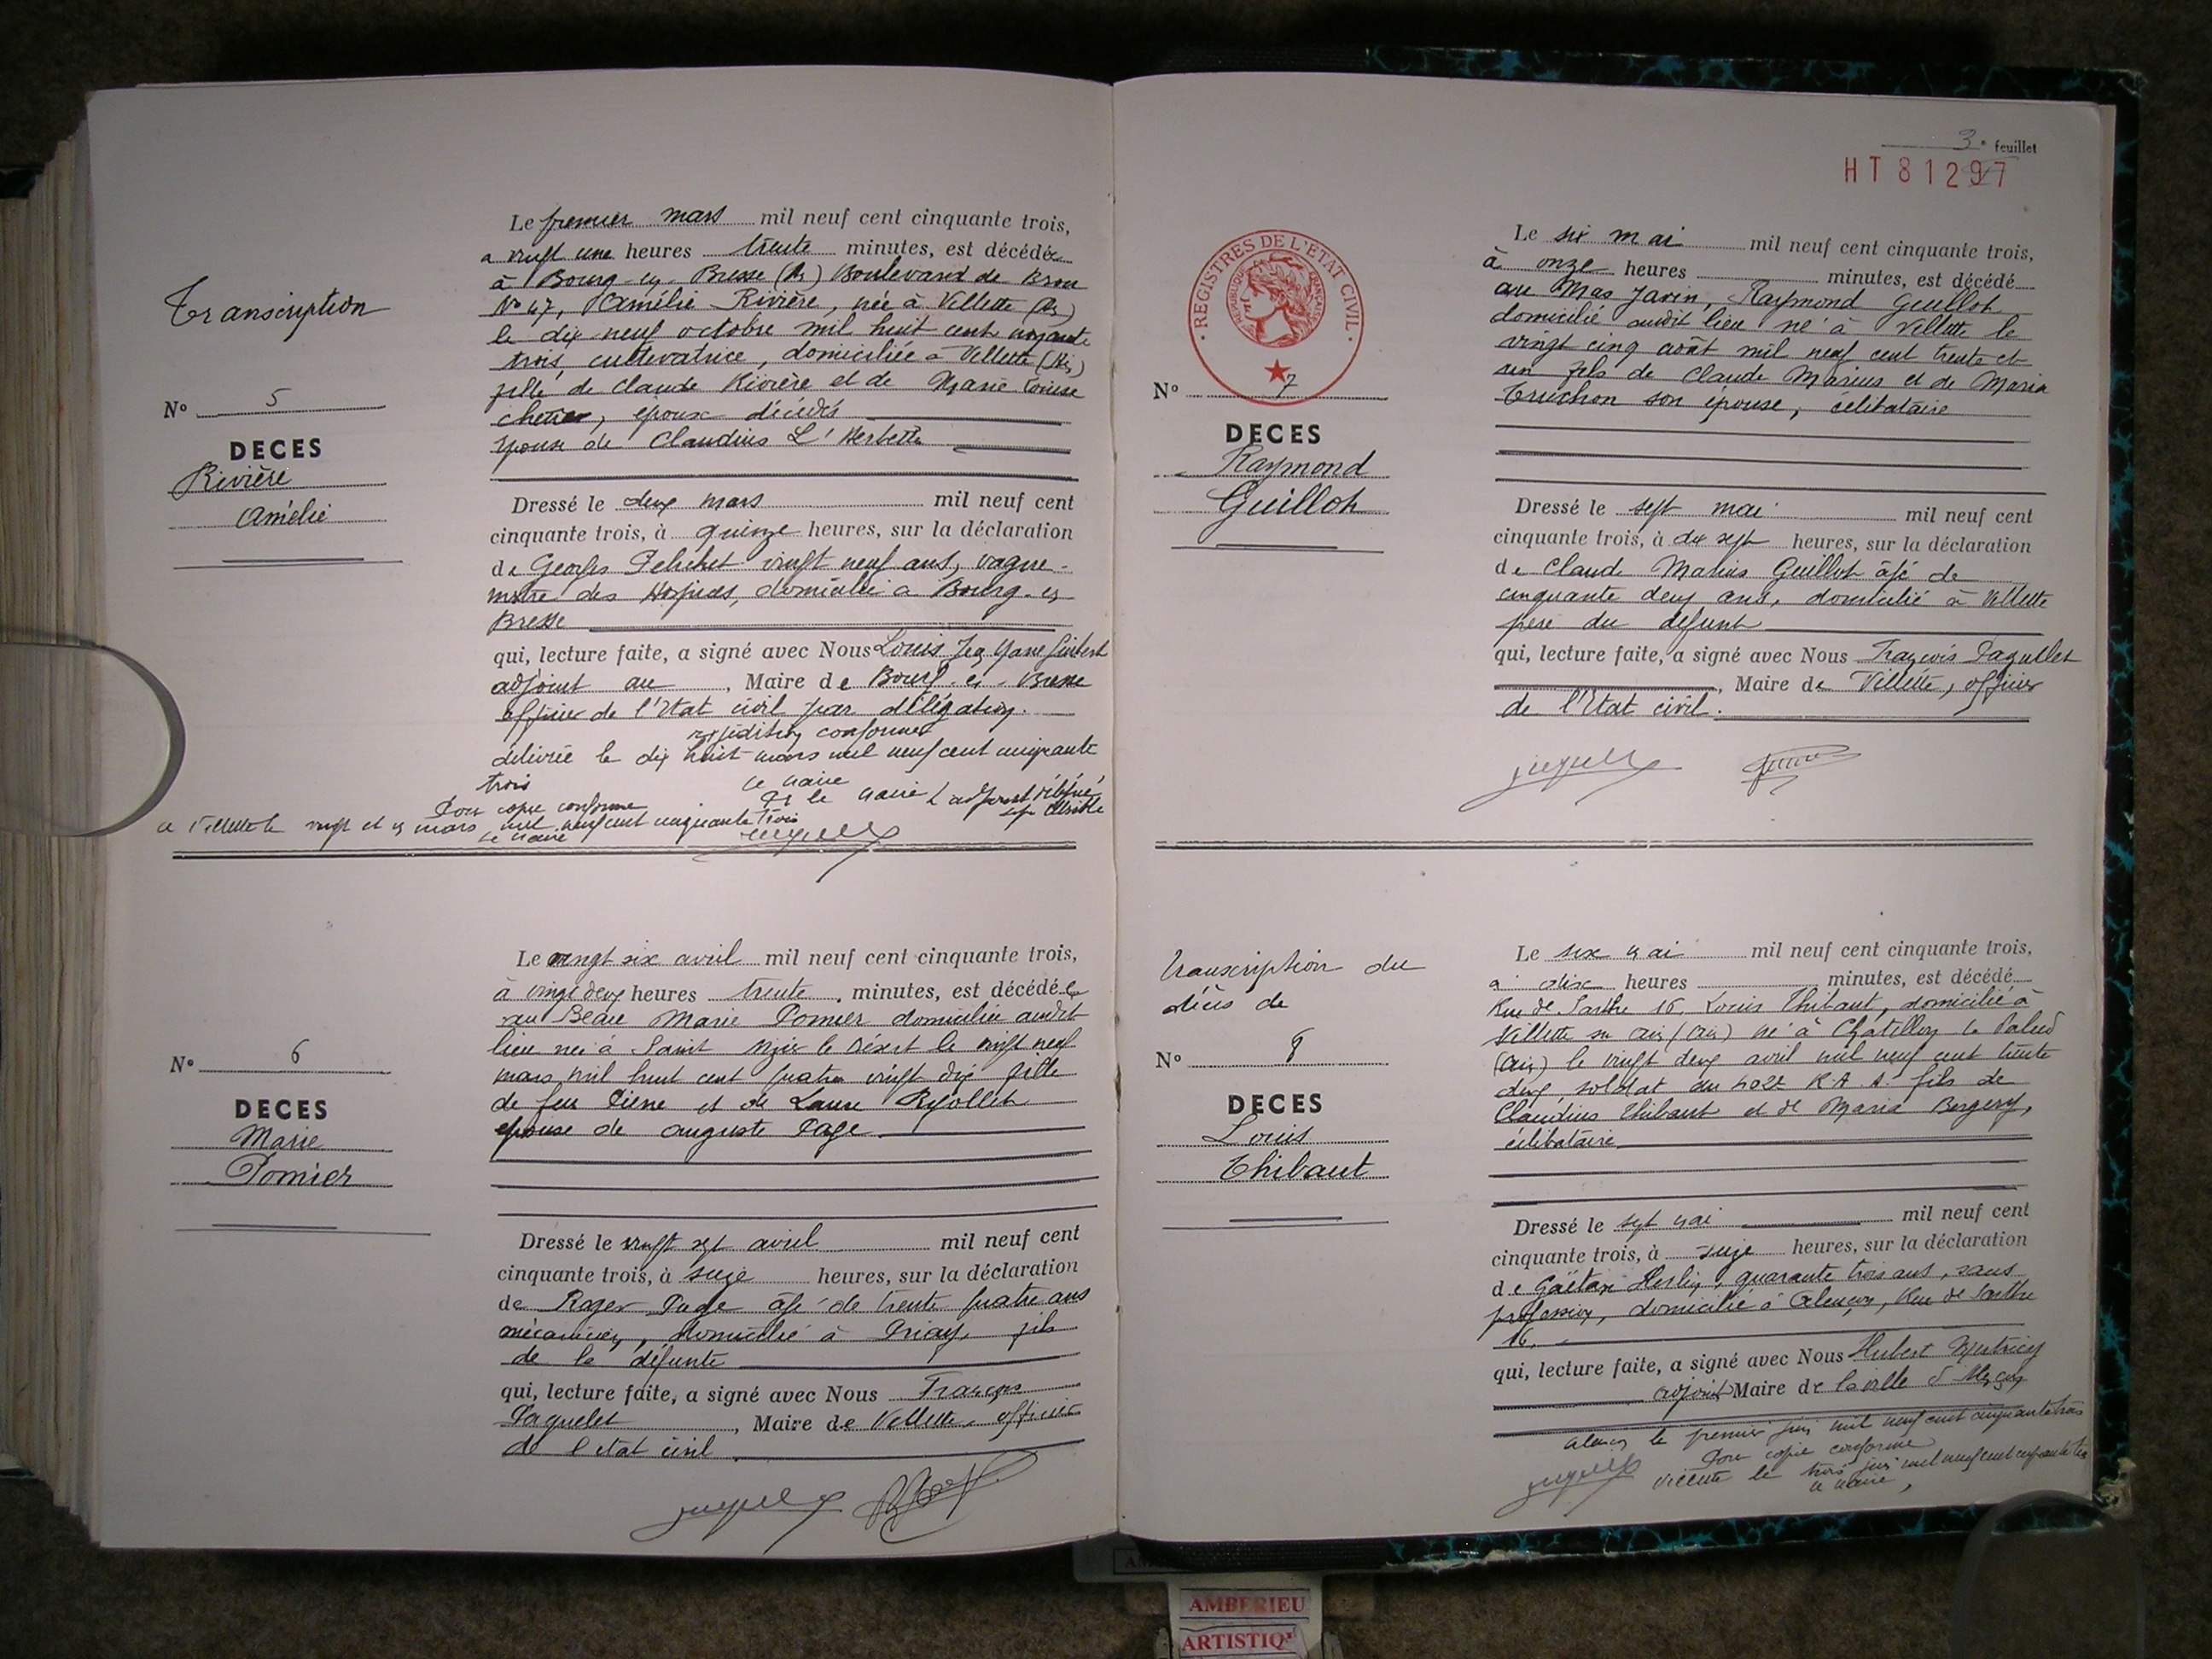 Transcription
N° 5
DECES
Rivière
Amélie
Le premier mars mil neuf cent cinquante trois,
a vingt une heures trente minutes, est décédée
à Bourg-en-Bresse (Ain) Boulevard de Brou
N° 47, Amélie Rivière, née à Villette (Ain)
le dix neuf octobre mil huit cent
trois, cultivatrice, domiciliée à Villette (Ain)
fille de Claude Rivière et de Marie Louise
époux décédés
épouse de Claudius L'Herbette
Dressé le deux mars mil neuf cent
cinquante trois, à quinze heures, sur la déclaration
de Georges vingt neuf ans, vague-
mestre des Hospices, domicilié à Bourg-en
Bresse
qui, lecture faite, a signé avec Nous Louis
adjoint au Maire de Bourg-en-Bresse
officier de l'Etat civil par délégation.
expédition conforme
délivrée le dix huit mars mil neuf cent cinquante
trois
le maire
Pr le maire l'adjoint délégué
sig illisible
Pour copie conforme
a Villette le vingt et un mars mil neuf cent cinquante trois
Le maire
N° 6
DECES
Marie
Pomier
Le vingt six avril mil neuf cent cinquante trois,
à vingt deux heures trente minutes, est décédée
au Beau Marie Pomier domiciliée audit
lieu née à Saint Nizier le Désert le vingt neuf
mars mil huit cent quatre vingt dix fille
de feu Pierre et de Laure
épouse de Auguste Page
Dressé le vingt sept avril mil neuf cent
cinquante trois, à seize heures, sur la déclaration
de Roger Page âgé de trente quatre ans
mécanicien, domicilié à Priay, fils
de la défunte
qui, lecture faite, a signé avec Nous François
Paquelet, Maire de Villette, officier
de l'etat civil
3e feuillet
HT 81297
REGISTRES DE L'ETAT CIVIL
N° 7
DECES
Raymond
Guillot
Le six mai mil neuf cent cinquante trois,
à onze heures minutes, est décédé
au Mas Jarin, Raymond Guillot
domicilié audit lieu né à Villette le
vingt cinq août mil neuf cent trente et
un fils de Claude Marius et de Maria
Truchon son épouse, célibataire
Dressé le sept mai mil neuf cent
cinquante trois, à dix sept heures, sur la déclaration
de Claude Marius Guillot âgé de
cinquante deux ans, domicilié à Villette
père du défunt
qui, lecture faite, a signé avec Nous François Paquelet
, Maire de Villette, officier
de l'Etat civil.
Transcription du
décès de
N° 8
DECES
Louis
Thibaut
Le six mai mil neuf cent cinquante trois,
à heures minutes, est décédé
Rue de Sarthe 16, Louis Thibaut, domicilié à
Villette sur Ain (Ain) né à Chatillon la Palud
(Ain) le vingt deux avril mil neuf cent trente
deux, soldat au 402e R.A.A. fils de
Claudius Thibaut et de Maria Bergery,
célibataire
Dressé le sept mai mil neuf cent
cinquante trois, à seize heures, sur la déclaration
de Gaëtan quarante trois ans, sans
profession, domicilié à Alençon, Rue de Sarthe
16.
qui, lecture faite, a signé avec Nous Hubert
adjoint Maire de la ville d'Alençon
Alençon le premier juin mil neuf cent cinquante trois
Pour copie conforme
Villette le trois juin mil neuf cent cinquante trois
le maire,
AMBERIEU
ARTISTIQ